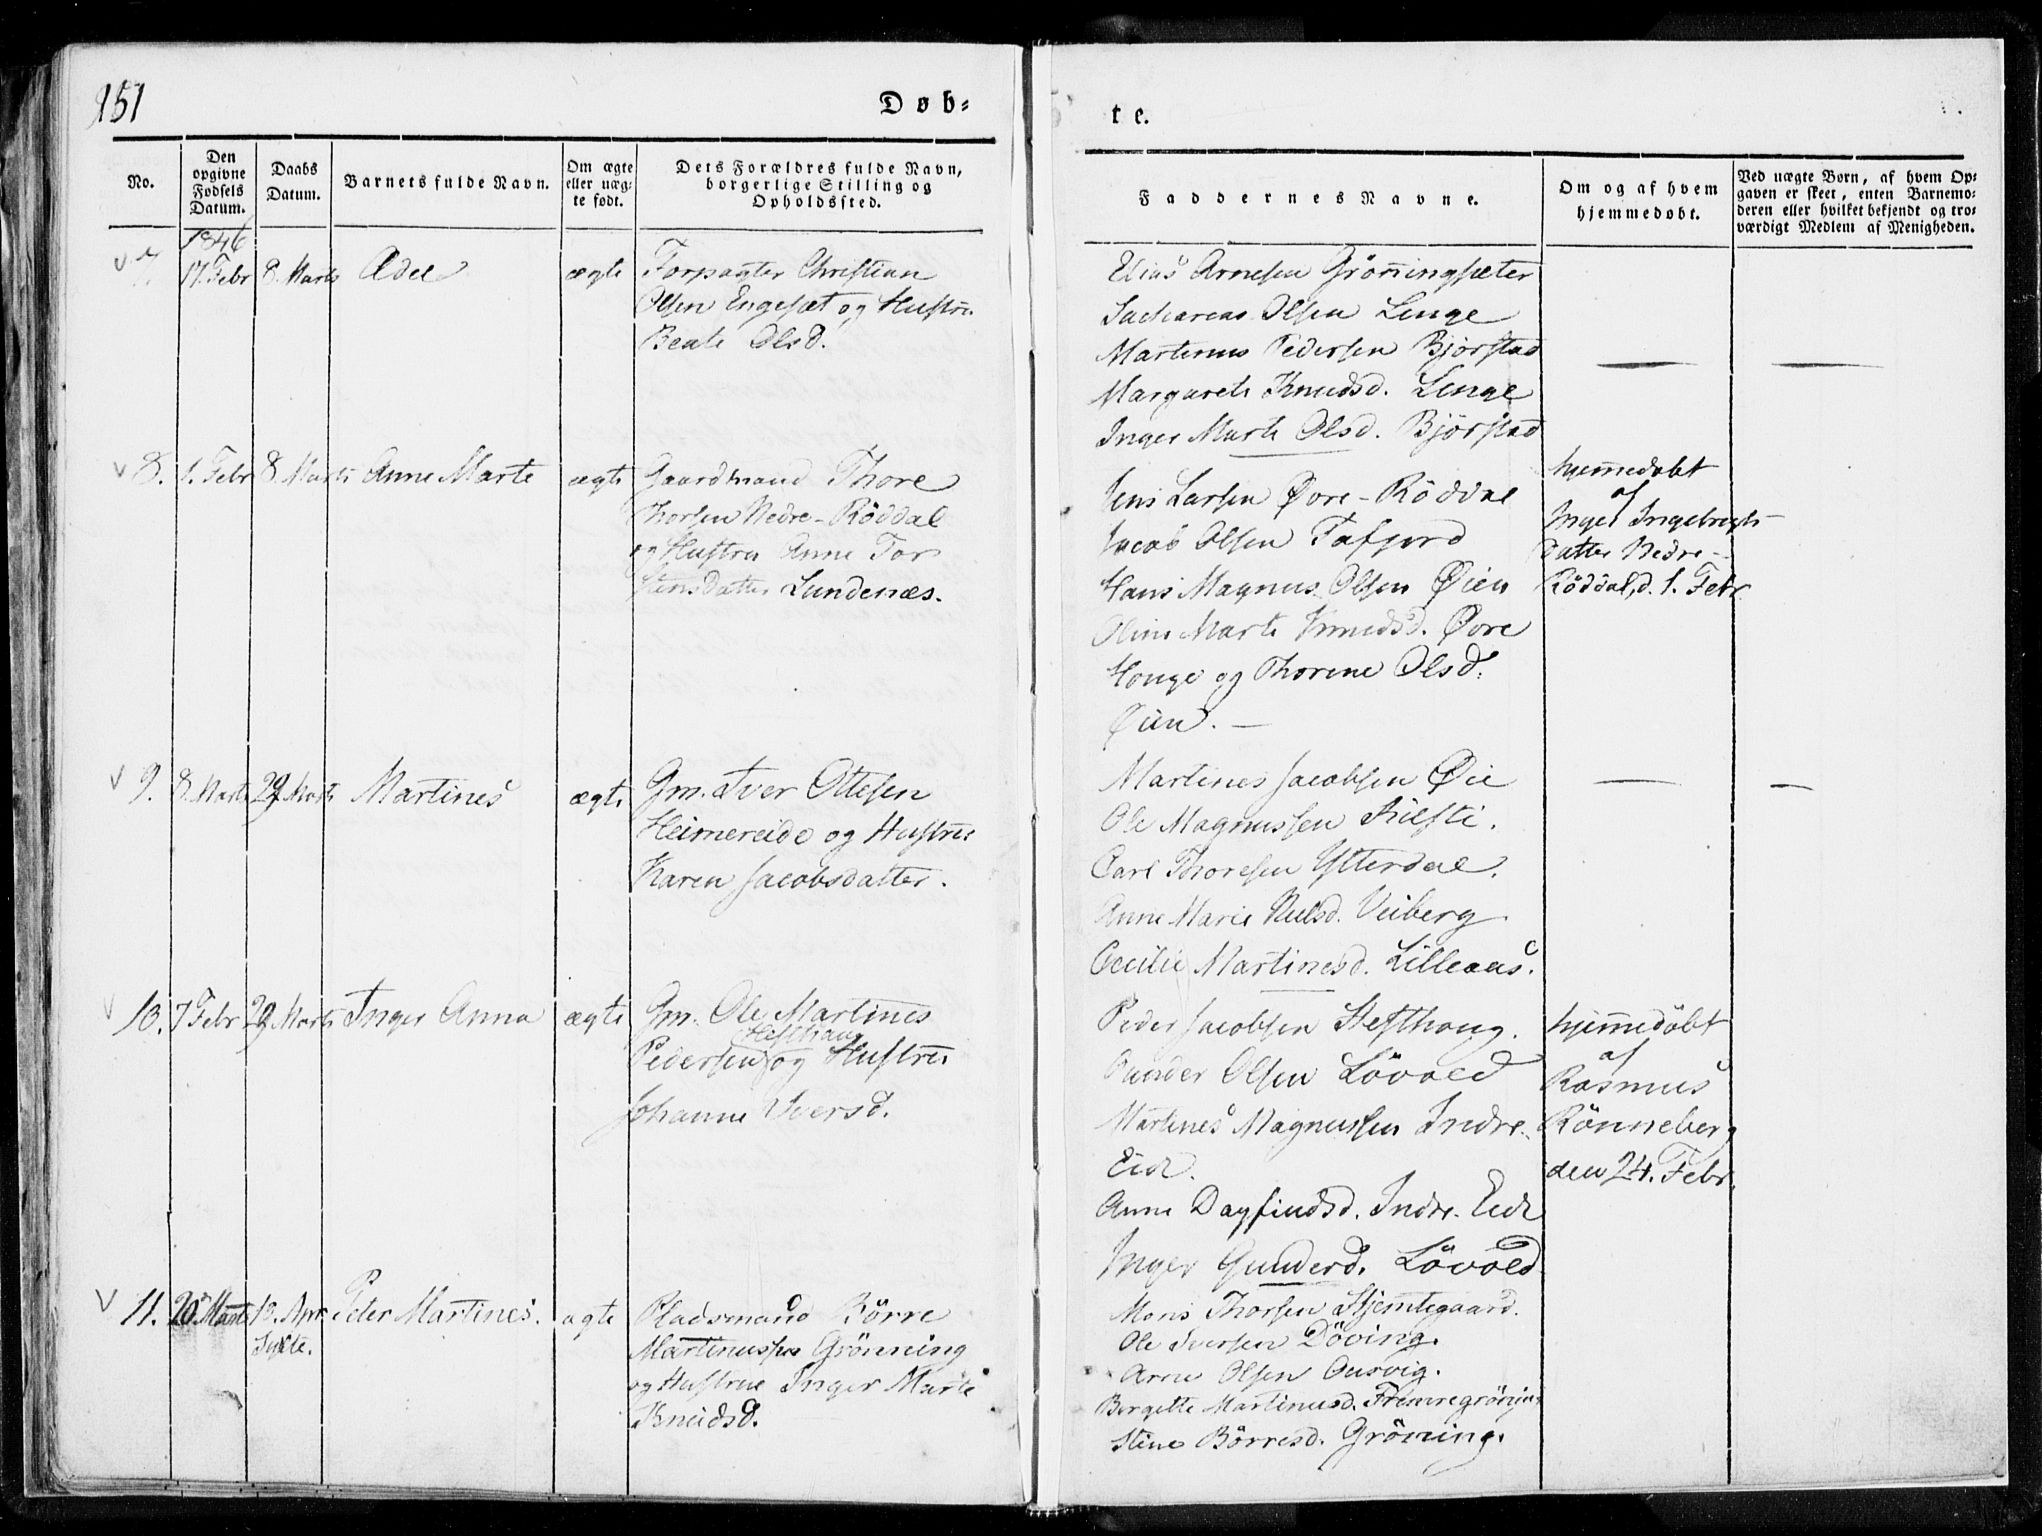 151
Døb-
te.
No.
Den opgivne Fødsels Datum.
Daabs Datum.
Barnets fulde Navn.
Om ægte eller uægte født.
Dets Forældres fulde Navn, borgerlige Stilling og Opholdssted.
Faddernes Navne.
Om og af hvem hjemmedøbt.
Ved uægte Børn, af hvem Opgaven er skeet, enten Barnemoderen eller hvilket bekjendt og troværdigt Medlem af Menigheden.
1846
7. 17. Febr 8. Marts Adel ægte
Forpagter Christian
Olsen Engesæt og Hustru
Beate Olsd.
Elias Arnesen Grönningsæter
Sacharias Olsen Linge
Martinus Pedersen Bjørstad
Margarete Knudsd. Linge
Inger Marte Olsd. Bjørstad
8. 1. Febr 8 Marts Anne Marte ægte
Gaardmand Thore
Thorsen Nedre-Röddal
og Hustru Anne Tor
stensdatter Lundenæs.
Jens Larsen Øvre-Röddal
Jacob Olsen Tafjord
Hans Magnus Olsen Øien
Oline Marte Knudsd. Øvre
Houge og Thorine Olsd.
Øien. —
hjemmedøbt
af
Inger Ingebregts-
datter Nedre-
Röddal, d. 1. Febr
9. 8. Marts 29 Marts Martines ægte
Gm. Iver Ottesen
Heimereide og Hustru
Karen Jacobsdatter.
Martines Jacobsen Øie
Ole Magnussen Kilsti.
Carl Thoresen Ytterdal.
Anne Marie Nielsd. Veiberg
Cecilie Martinesd. Lilleaas.
10. 7 Febr 29 Marts Inger Anna ægte
Gm. Ole Martines
Hesthaug
Pedersen og Hustru
Johanne Iversd.
Peder Jacobsen Hesthoug.
Gunder Olsen Lövold
Martines Magnussen Indre-
Eide.
Anne Dagfindsd. Indre-Eide
Inger Gunderd. Lövold
hjemmedöbt
af
Rasmus
Rönneberg
den 24. Febr.
11. 20 Marts 13. Apr. Peter Martines. ægte
Pladsmand Börre
Martinussen Grönning
og Hustrue Inger Marte
Knudsd.
Mons Thorsen Stjemtegaard.
Ole Iversen Döving.
Arne Olsen Gusvig.
Bergitte Martinusd. Fremregröning
Stine Börresd. Gröning.